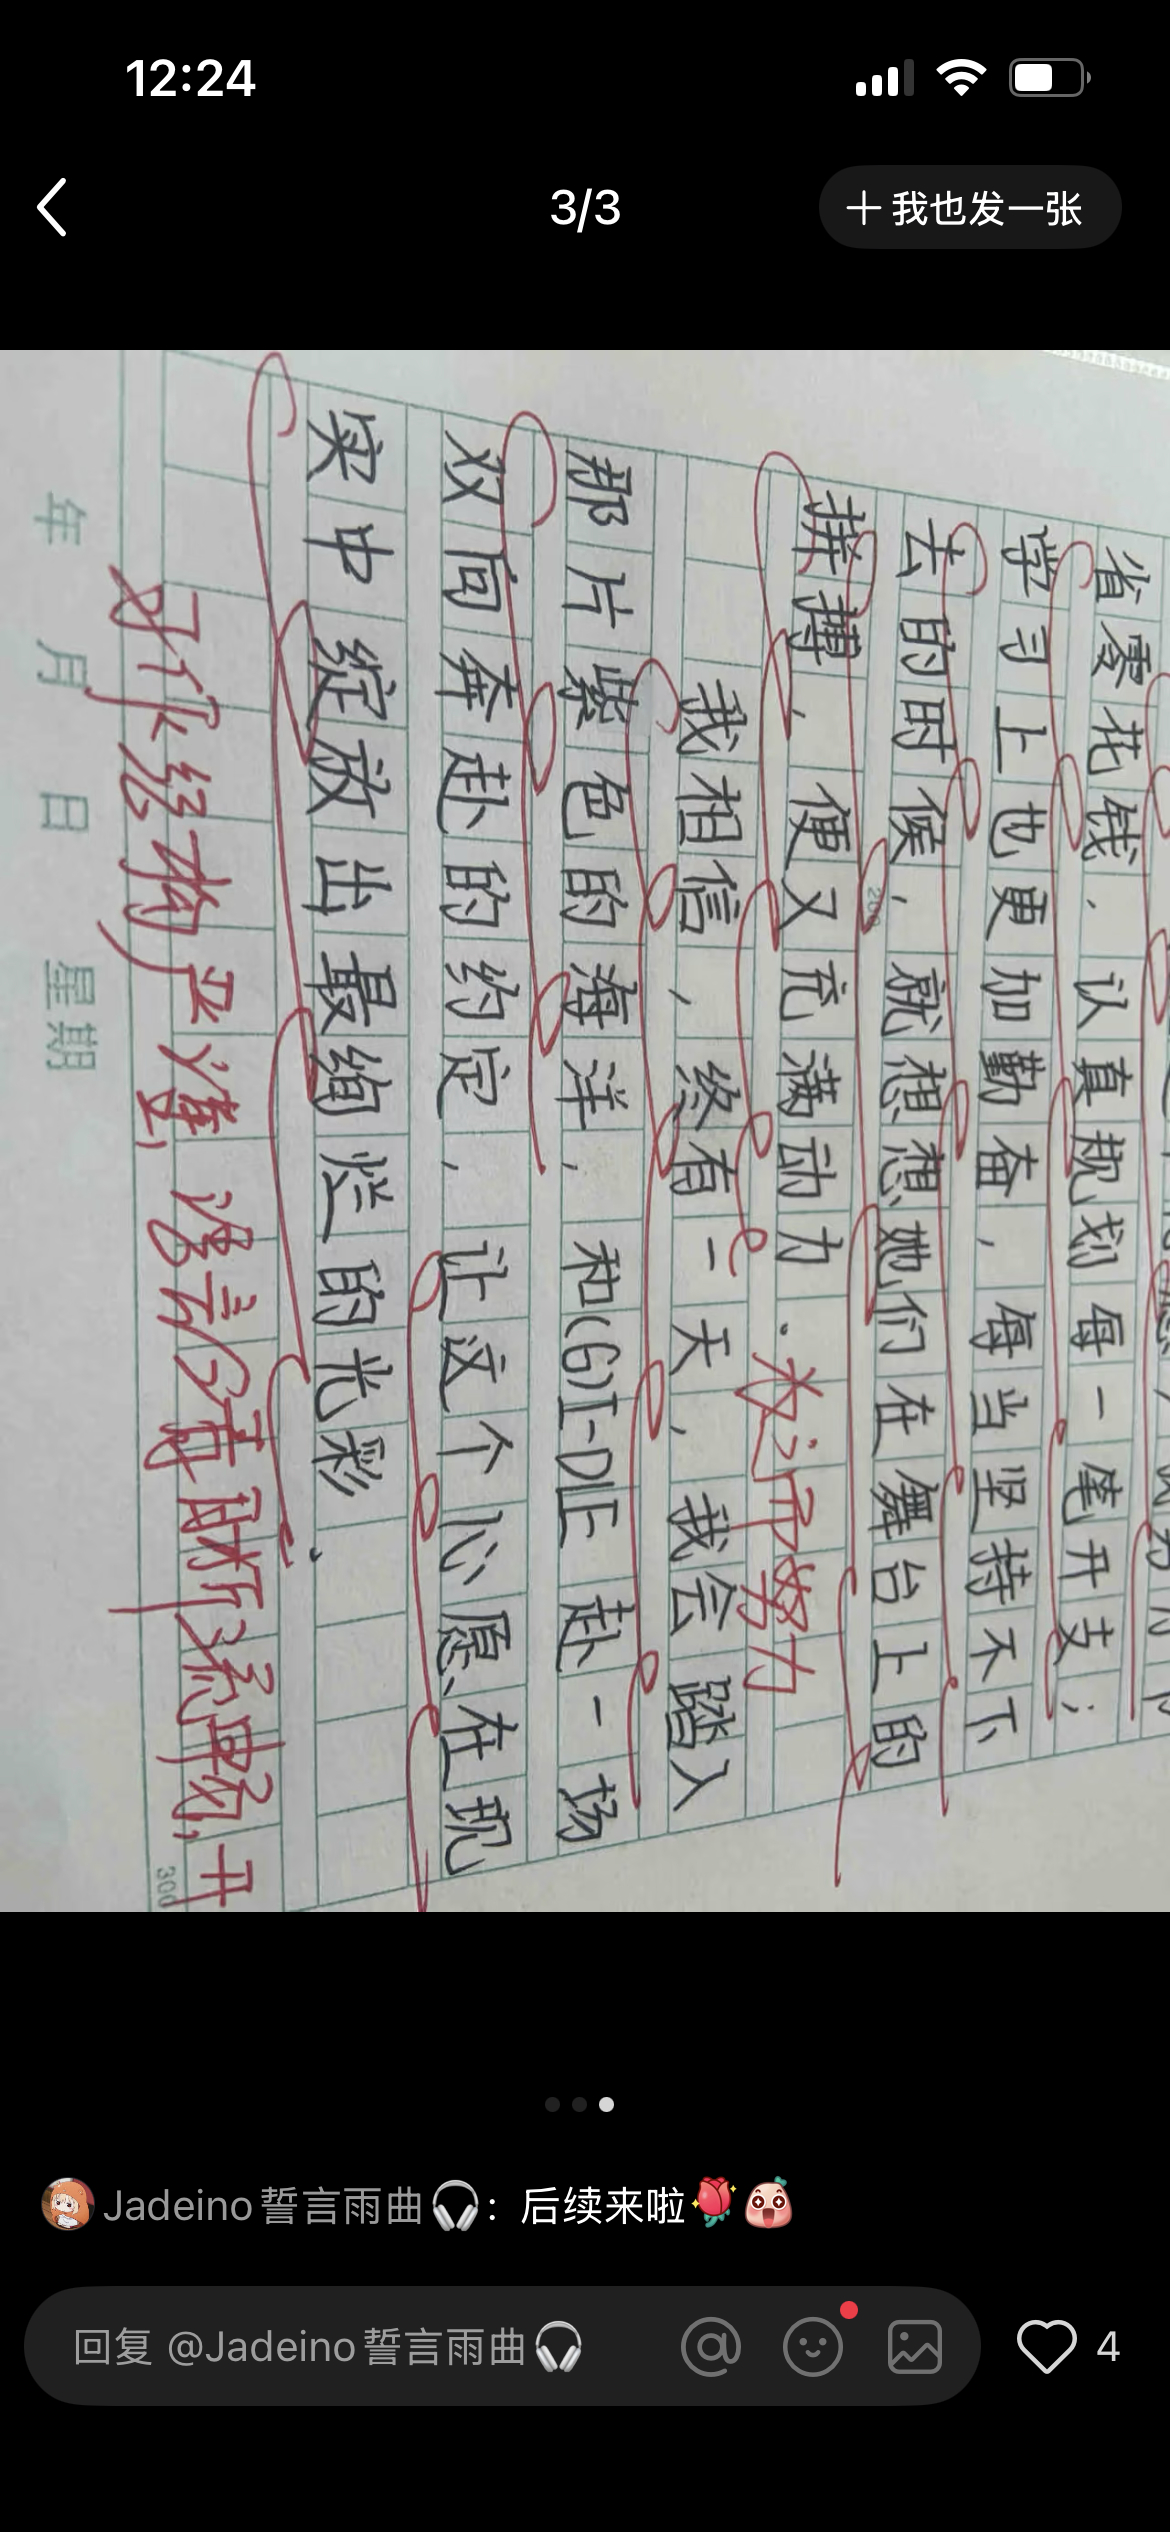 12:24
3/3
我也发一张
省零花钱，认真规划每一笔开支；
学习上也更加勤奋，每当坚持不下
去的时候，就想想她们在舞台上的
拼搏，便又充满动力．永远而努力
200
我相信，终有一天，我会踏入
那片紫色的海洋，和(G)I-DLE赴一场
双向奔赴的约定，让这个心愿在现
实中绽放出最绚烂的光彩．
结构严谨，语言
流畅，开
300
年 月 日 星期
Jadeino誓言雨曲🎧：后续来啦
回复 @Jadeino誓言雨曲🎧
4